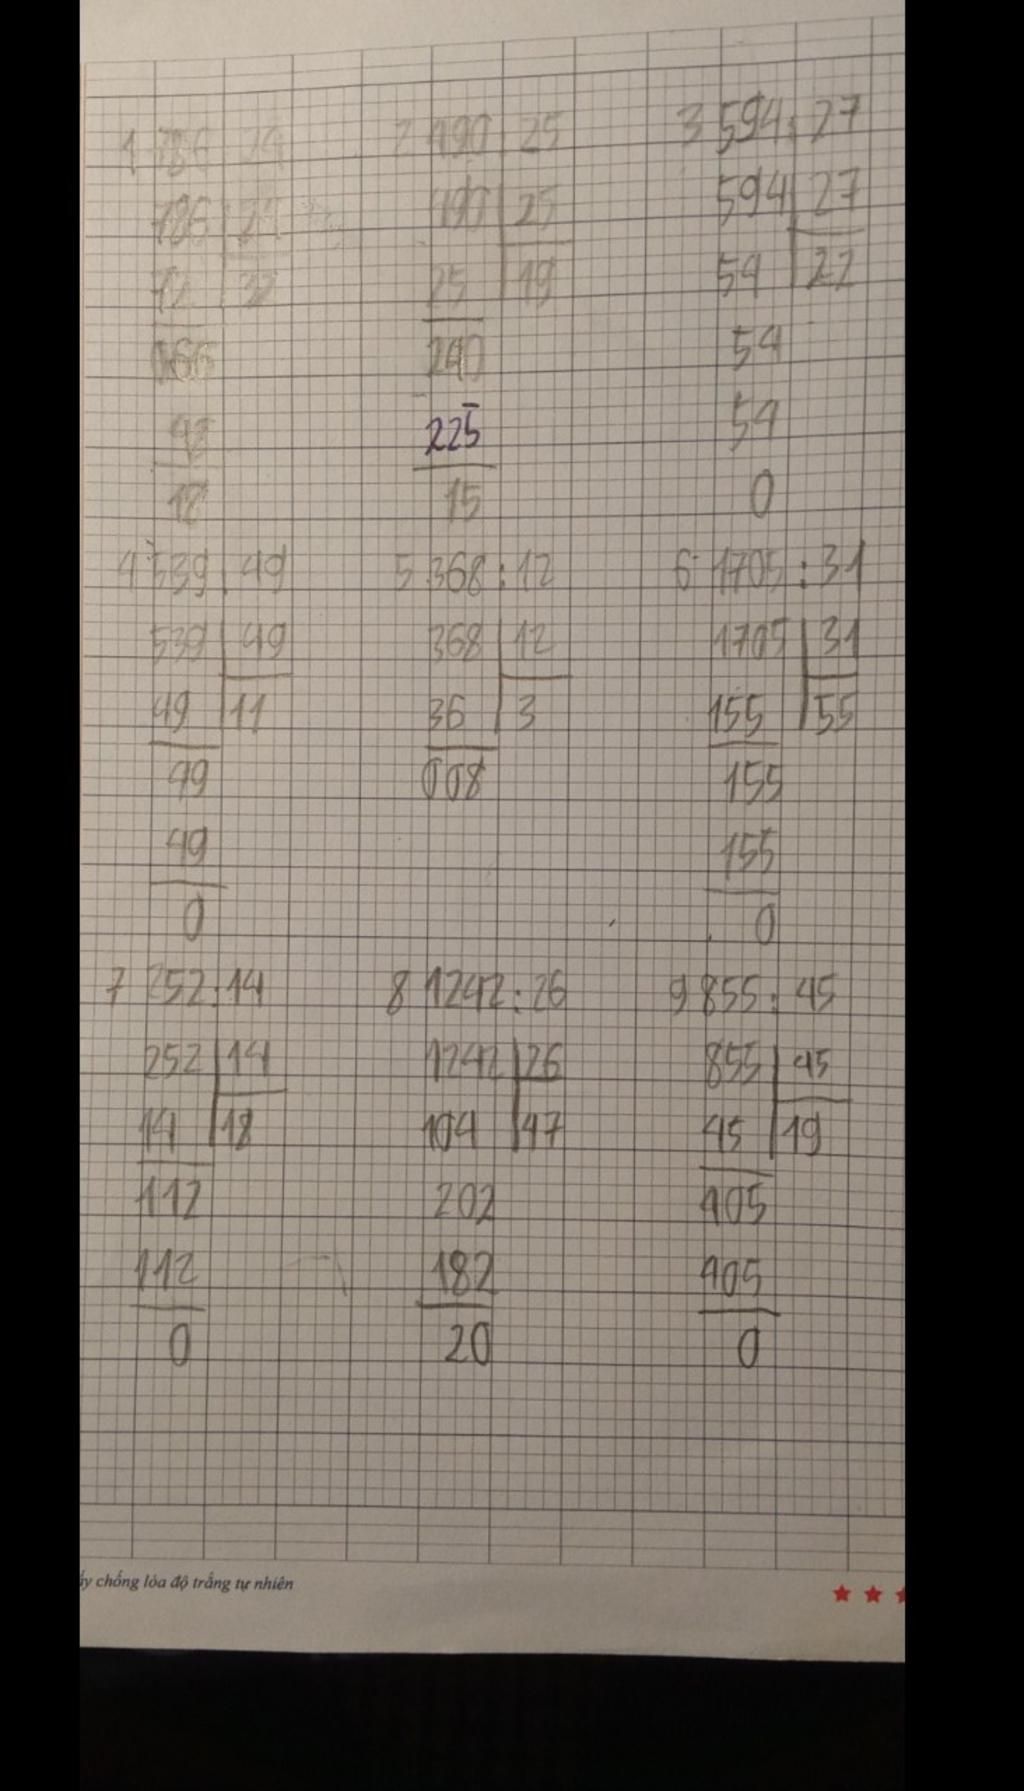 1 786 : 24 2 490 : 25 3 594 : 27
786 24 490 25 594 27
72 32 25 19 54 22
066 240 54
48 225 54
18 15 0
4 539 : 49 5 368 : 12 6 1705 : 31
539 49 368 12 1705 31
49 11 36 3 155 55
49 008 155
49 155
0 0
7 252 : 14 8 1242 : 26 9 855 : 45
252 14 1242 26 855 45
14 18 104 47 45 19
112 202 405
112 182 405
0 20 0
chống lóa độ trắng tự nhiên